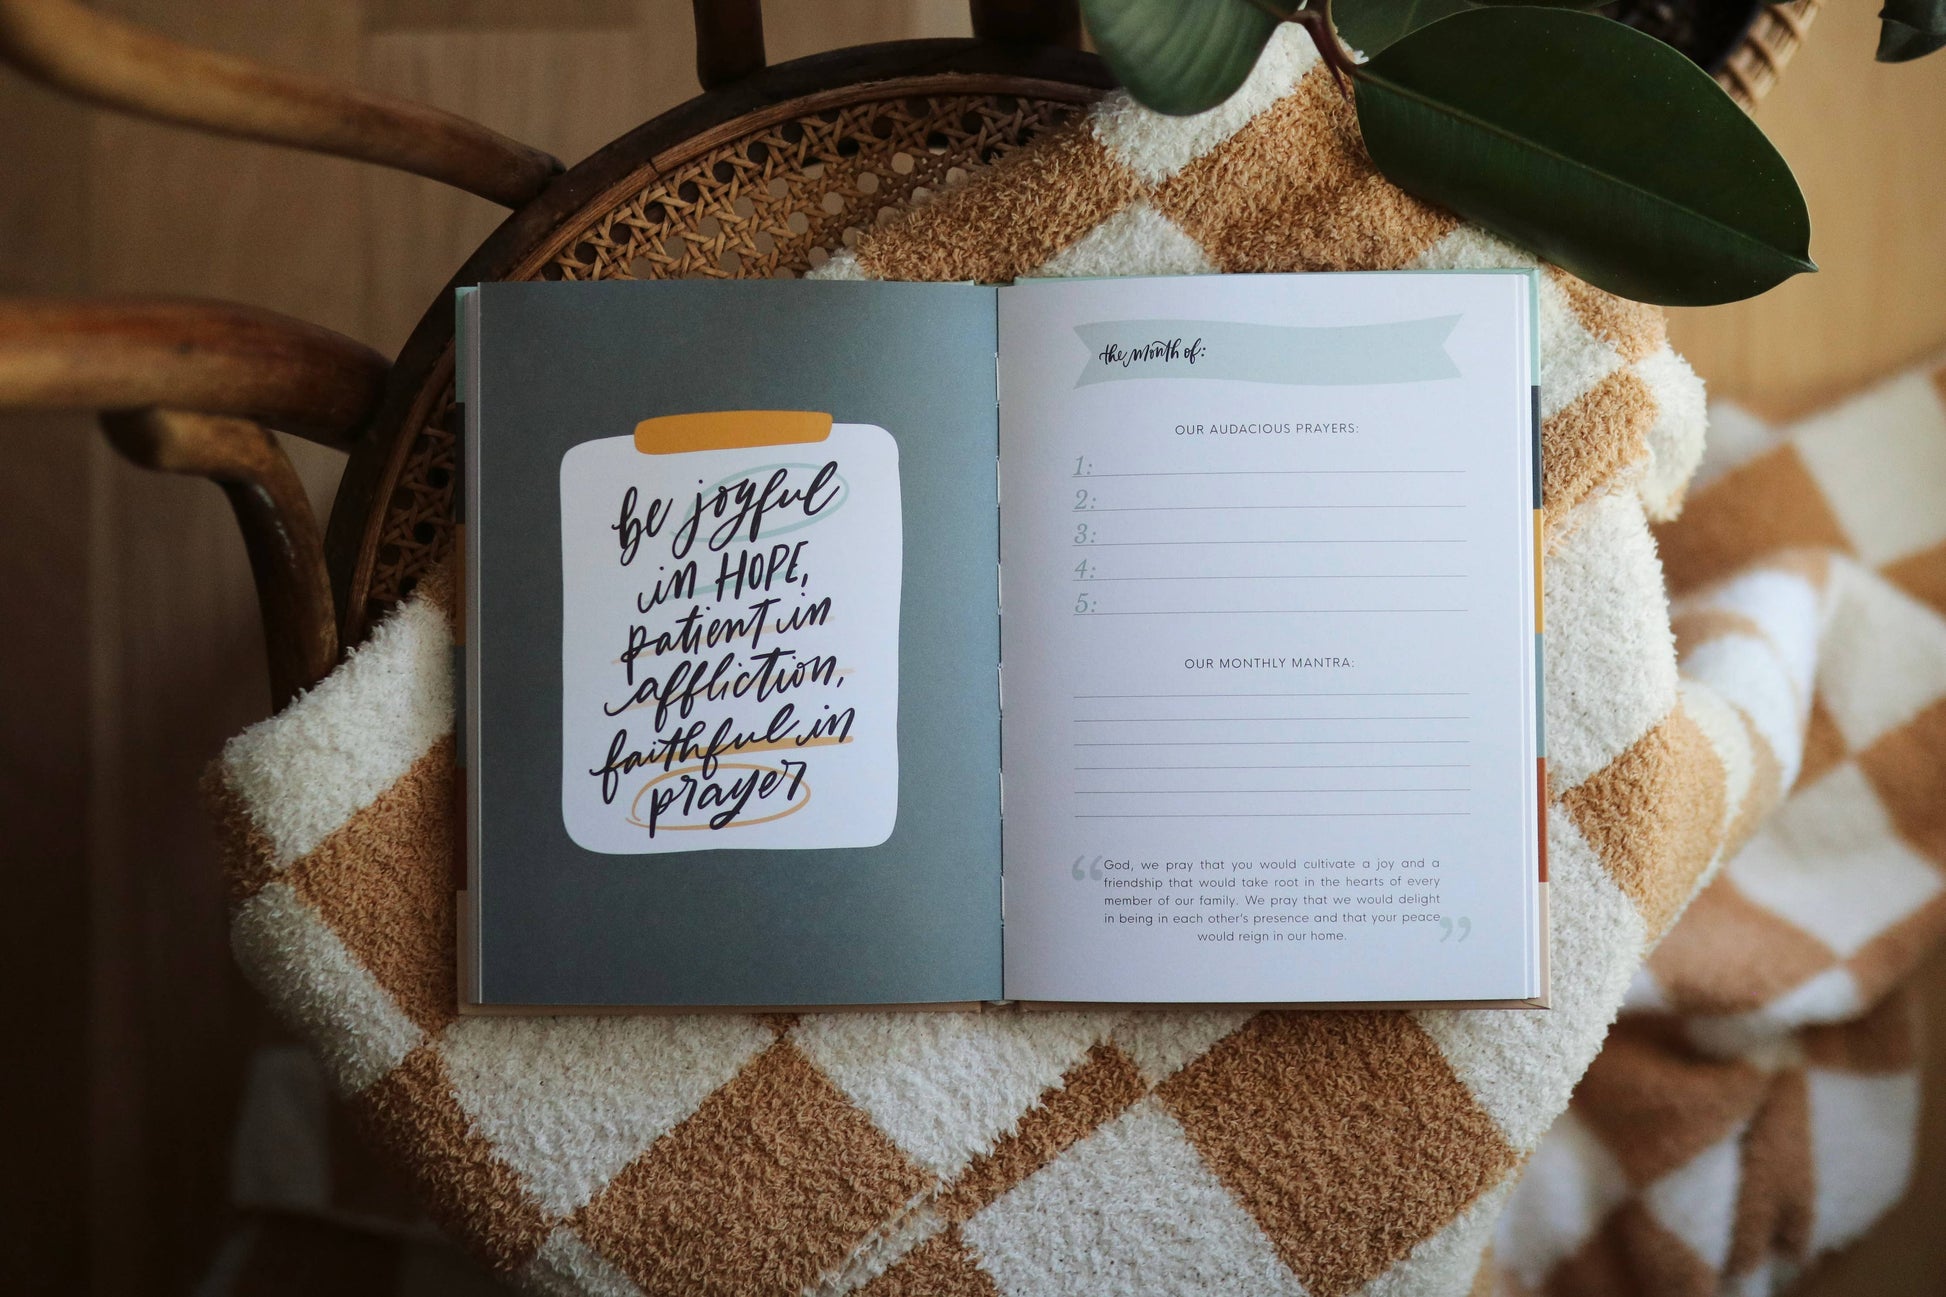 be joyful
in HOPE,
patient in
affliction,
faithful in
prayer
the month of:
OUR AUDACIOUS PRAYERS:
1:
2:
3:
4:
5:
OUR MONTHLY MANTRA:
“God, we pray that you would cultivate a joy and a
friendship that would take root in the hearts of every
member of our family. We pray that we would delight
in being in each other's presence and that your peace
would reign in our home.”